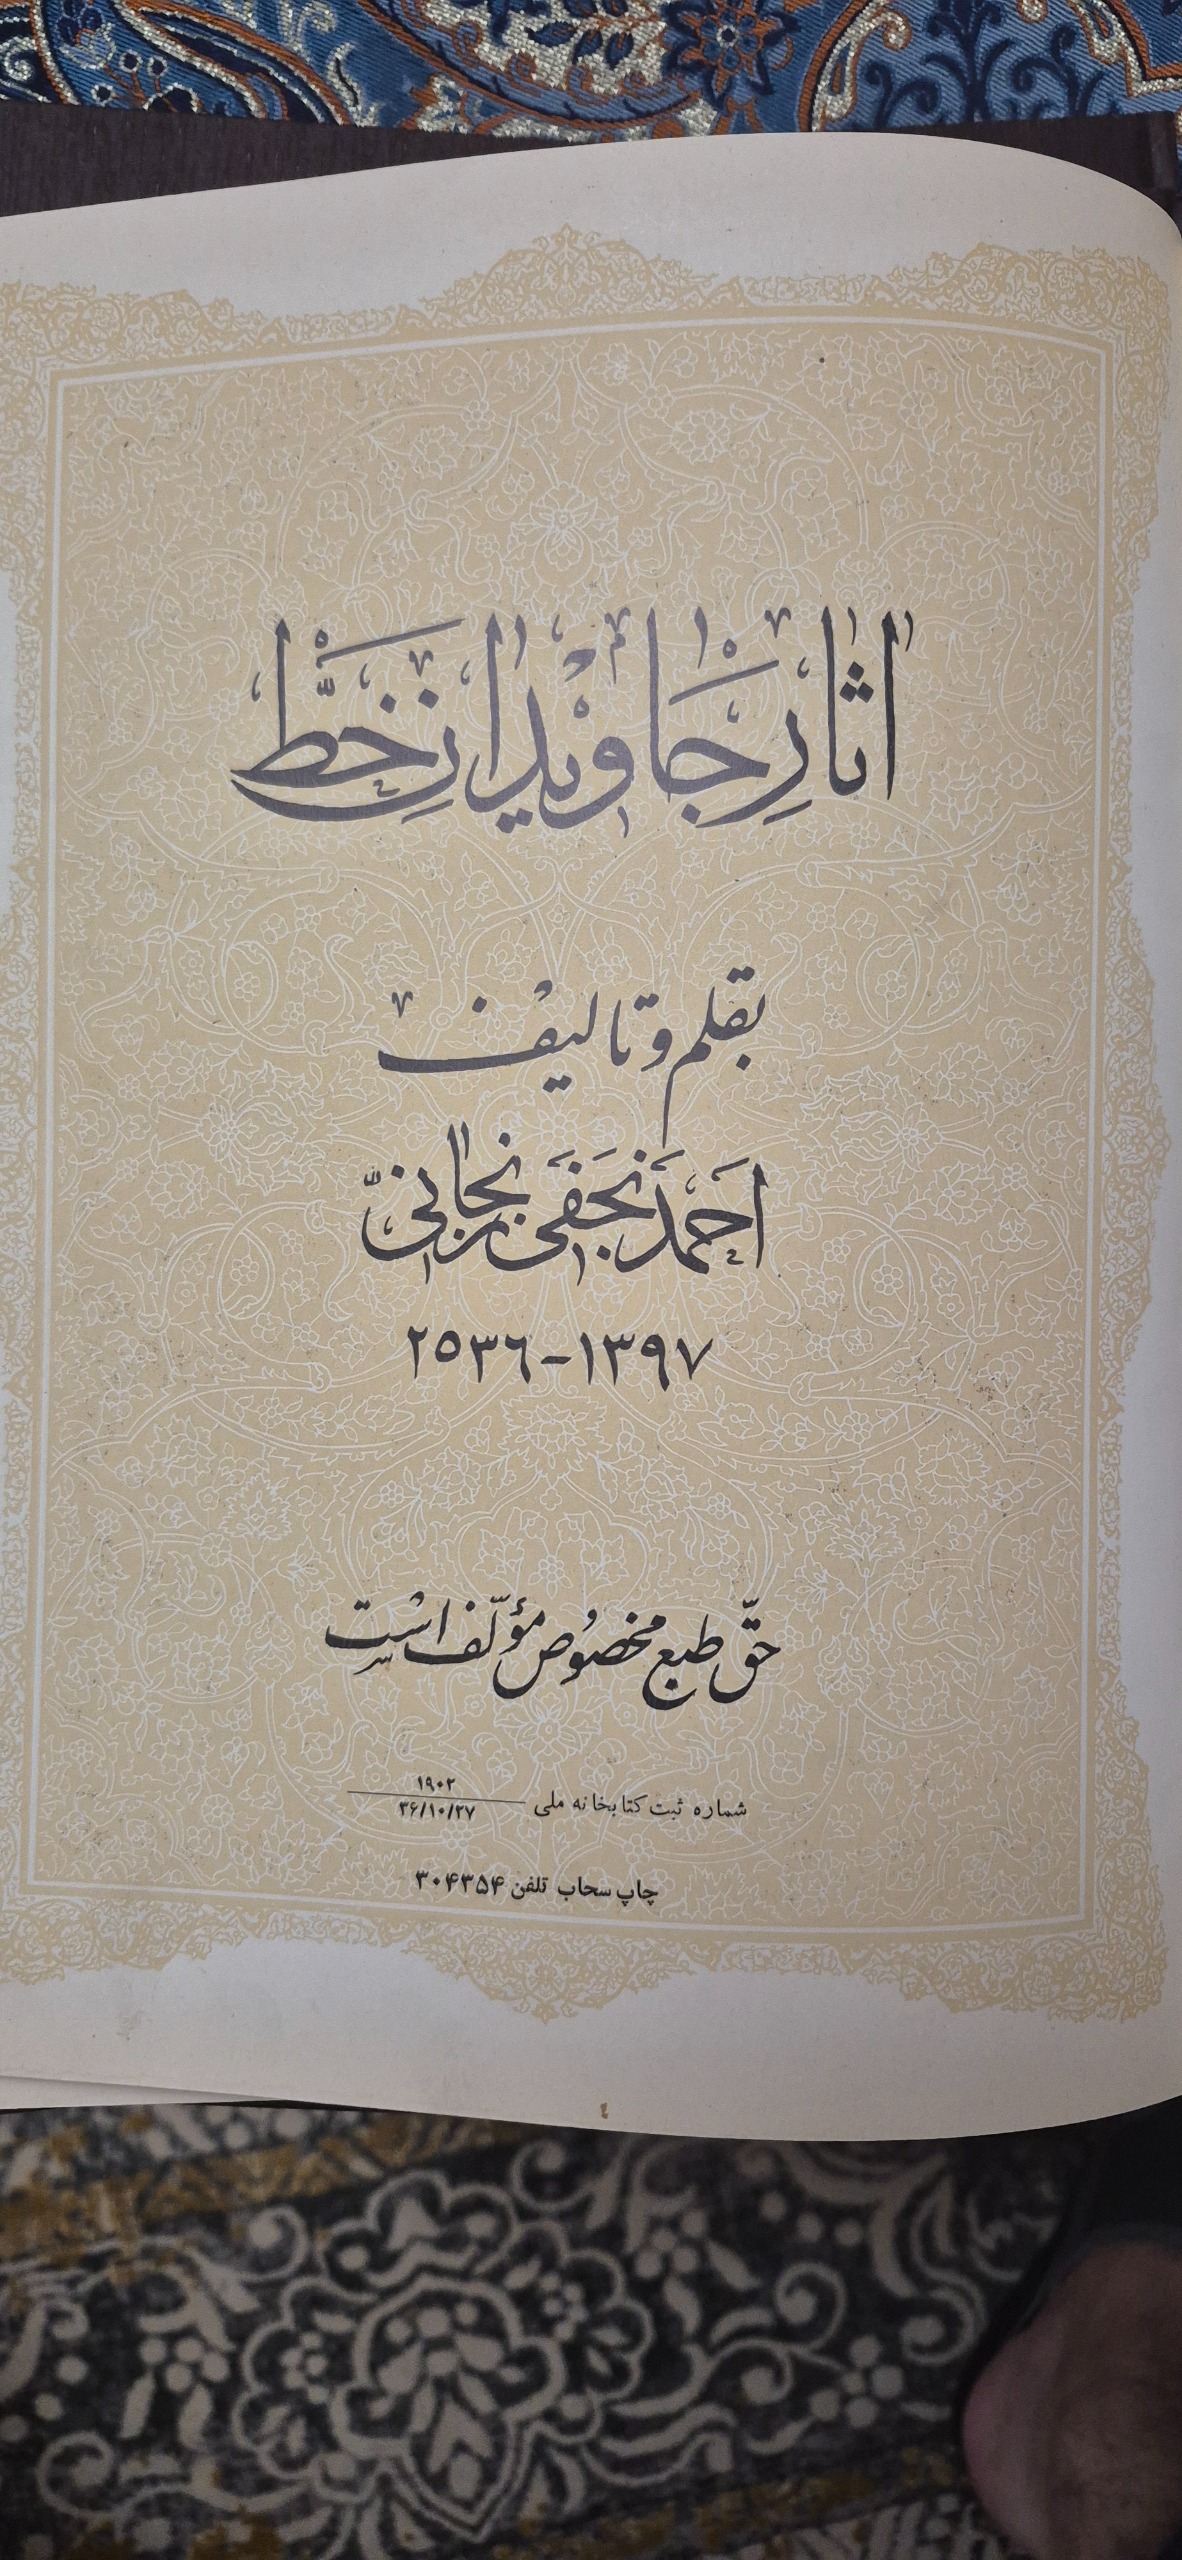 اثارِ جاویدانِ خط
بقلم و تالیف
احمد نجفی زنجانی
۲۵۳٦-۱۳۹۷
حقّ طبع مخصُوص مؤلّف است
شماره ثبت کتابخانه ملی ۱۹۰۲
۳۶/۱۰/۲۷
چاپ سحاب تلفن ۳۰۴۳۵۴
٤